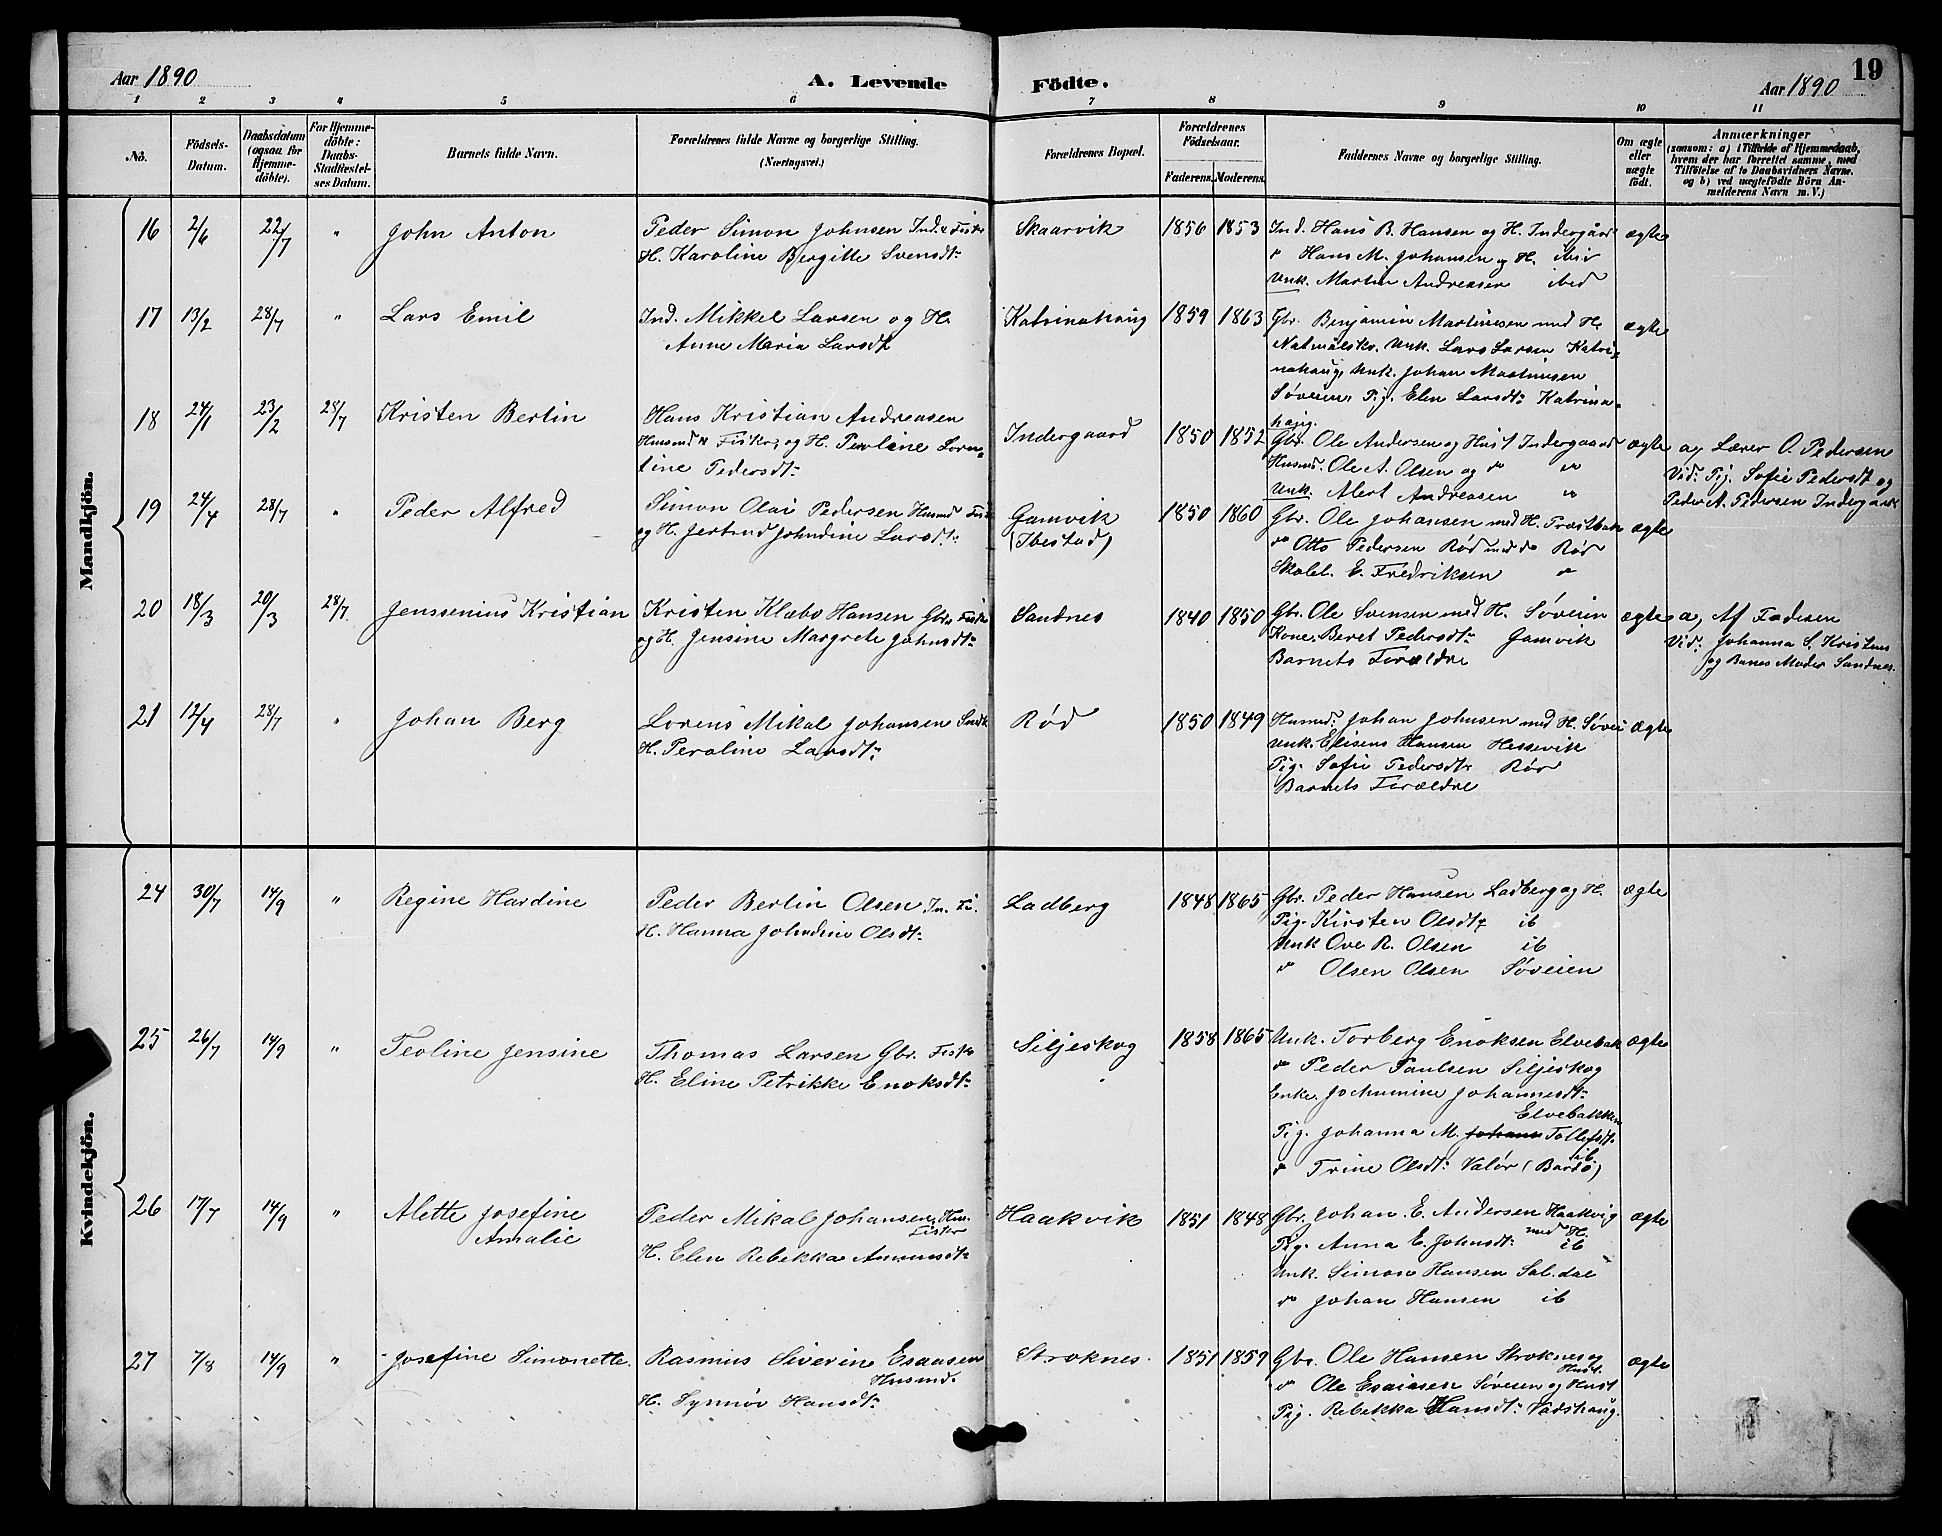 Aar 1890
A. Levende Födte.
Aar 1890
19
1 2 3 4 5 6 7 8 9 10 11
No.
Födsels-Datum.
Daabsdatum (ogsaa for Hjemme-döbte).
For Hjemme-döbte: Daabs-Stadfæstel-ses Datum.
Barnets fulde Navn.
Forældrenes fulde Navne og borgerlige Stilling. (Næringsvei.)
Forældrenes Bopæl.
Forældrenes Födselsaar.
Faderens. Moderens.
Faddernes Navne og borgerlige Stilling.
Om ægte eller uægte födt.
Anmærkninger
(saasom: a) i Tilfælde af Hjemmedaab,
hvem der har forrettet samme, med
Tilföielse af to Daabsvidners Navne.
og b) ved uægtefödte Börn An-
melderens Navn m. V.)
Mandkjön.
16 2/6 22/7 " John Anton
Peder Simon Johnsen Ind. & Fisk
H. Karoline Bergitte Svensdt:
Skaarvik 1856 1853
Ind. Hans B. Hansen og H. Indergård
" Hans M. Johansen og H. ibid
Unk. Martin Andreasen ibid
ægte
17 13/2 28/7 " Lars Emil
Ind. Mikkel Larsen og H.
Anne Maria Larsdt
Katrinahaug 1859 1863
Gbr. Benjamin Martinesen med H.
Natmålsk. Unk. Lars Larsen Katri-
nahaug, Unk. Johan Martinesen
Søveien, Pig. Elen Larsdt: Katrina-
haug.
ægte
18 24/1 23/2 28/7 Kristen Berlin
Hans Kristian Andreasen
Husmd & Fisker, og H. Peroline Loren-
tine Pedersdt:
Indergaard 1850 1852
Gbr. Ole Andersen og Hust Indergaard
Husmd. Ole A. Olsen og do "
Unk. Alert Andreasen "
ægte
a, Lærer O. Pedersen
Vid: Pig. Sofie Pedersdt og
Peder A. Pedersen Indergaard
19 24/4 28/7 " Peder Alfred
Simon Olai Pedersen Husmd Fisk
og H. Jertrud Johndine Larsdt:
Gamvik
(Ibestad)
1850 1860
Gbr. Ole Johansen med H. Prestbak
do Otto Pedersen Rød med do Rød
Skolel. E. Fredriksen "
ægte
20 18/3 20/3 28/7 Jenssenius Kristian
Kristen Klæbo Hansen Gbr. Fisk
og H. Jensine Margrete Johnsdt:
Sandnes 1840 1850
Gbr. Ole Svensen med H. Søveien
Kone. Beret Pedersdt: Gamvik
Barnets Forældre
ægte
a, Af Faderen
Vid: Johanna S. Kristens
og Barnes Moder Sandnes.
21 12/4 28/7 " Johan Berg
Lorens Mikal Johansen
H. Peroline Larsdt:
Rød 1850 1849
Husmd: Johan Johnsen med H. Søvei
Unk. Elisens Hansen Hessevik
Pig. Sofie Pedersdt: Rød
Barnets Forældre
ægte
Kvindekjön.
24 30/7 14/9 " Regine Hardine
Peder Berlin Olsen In. Fi.
H. Hanna Johndine Olsdt:
Ladberg 1848 1865
Gbr. Peder Hansen Ladberg og H.
Pig. Kirsten Olsdt: ib
Unk Ove R. Olsen ib
do Olsen Olsen Søveien
ægte
25 26/7 14/9 " Teoline Jensine
Thomas Larsen Gbr. Fisk
H. Eline Petrikke Enoksdt:
Siljeskog 1858 1865
Unk. Torberg Enoksen Elvebak
do Peder Paulsen Siljeskog
Enke. Jochumine Johannesdt:
Elvebakken
Pig. Johanna M. Johann Tollefsdt.
ib
do Trine Olsdt: Valør (Bardo)
ægte
26 17/7 14/9 " Alette Josefine
Amalie
Peder Mikal Johansen, Hus.
Fisker
H. Elen Rebekka Amundsdt:
Haakvik 1851 1848
Gbr. Johan E. Andersen Haakvig
med H.
Pig. Anna E. Johnsdt: ib
Unk. Simon Hansen Sal.dal
do Johan Hansen ib
ægte
27 7/8 14/9 " Josefine Simonette.
Rasmus Siverin Esaasen
Husmd.
H. Synnøv Hansdt:
Stroknes. 1851 1859
Gbr. Ole Hansen Stroknes og
Hust.
do Ole Esaiasen Søveien og Hust
Pig. Rebekka Hansdt: Vadshaug.
ægte